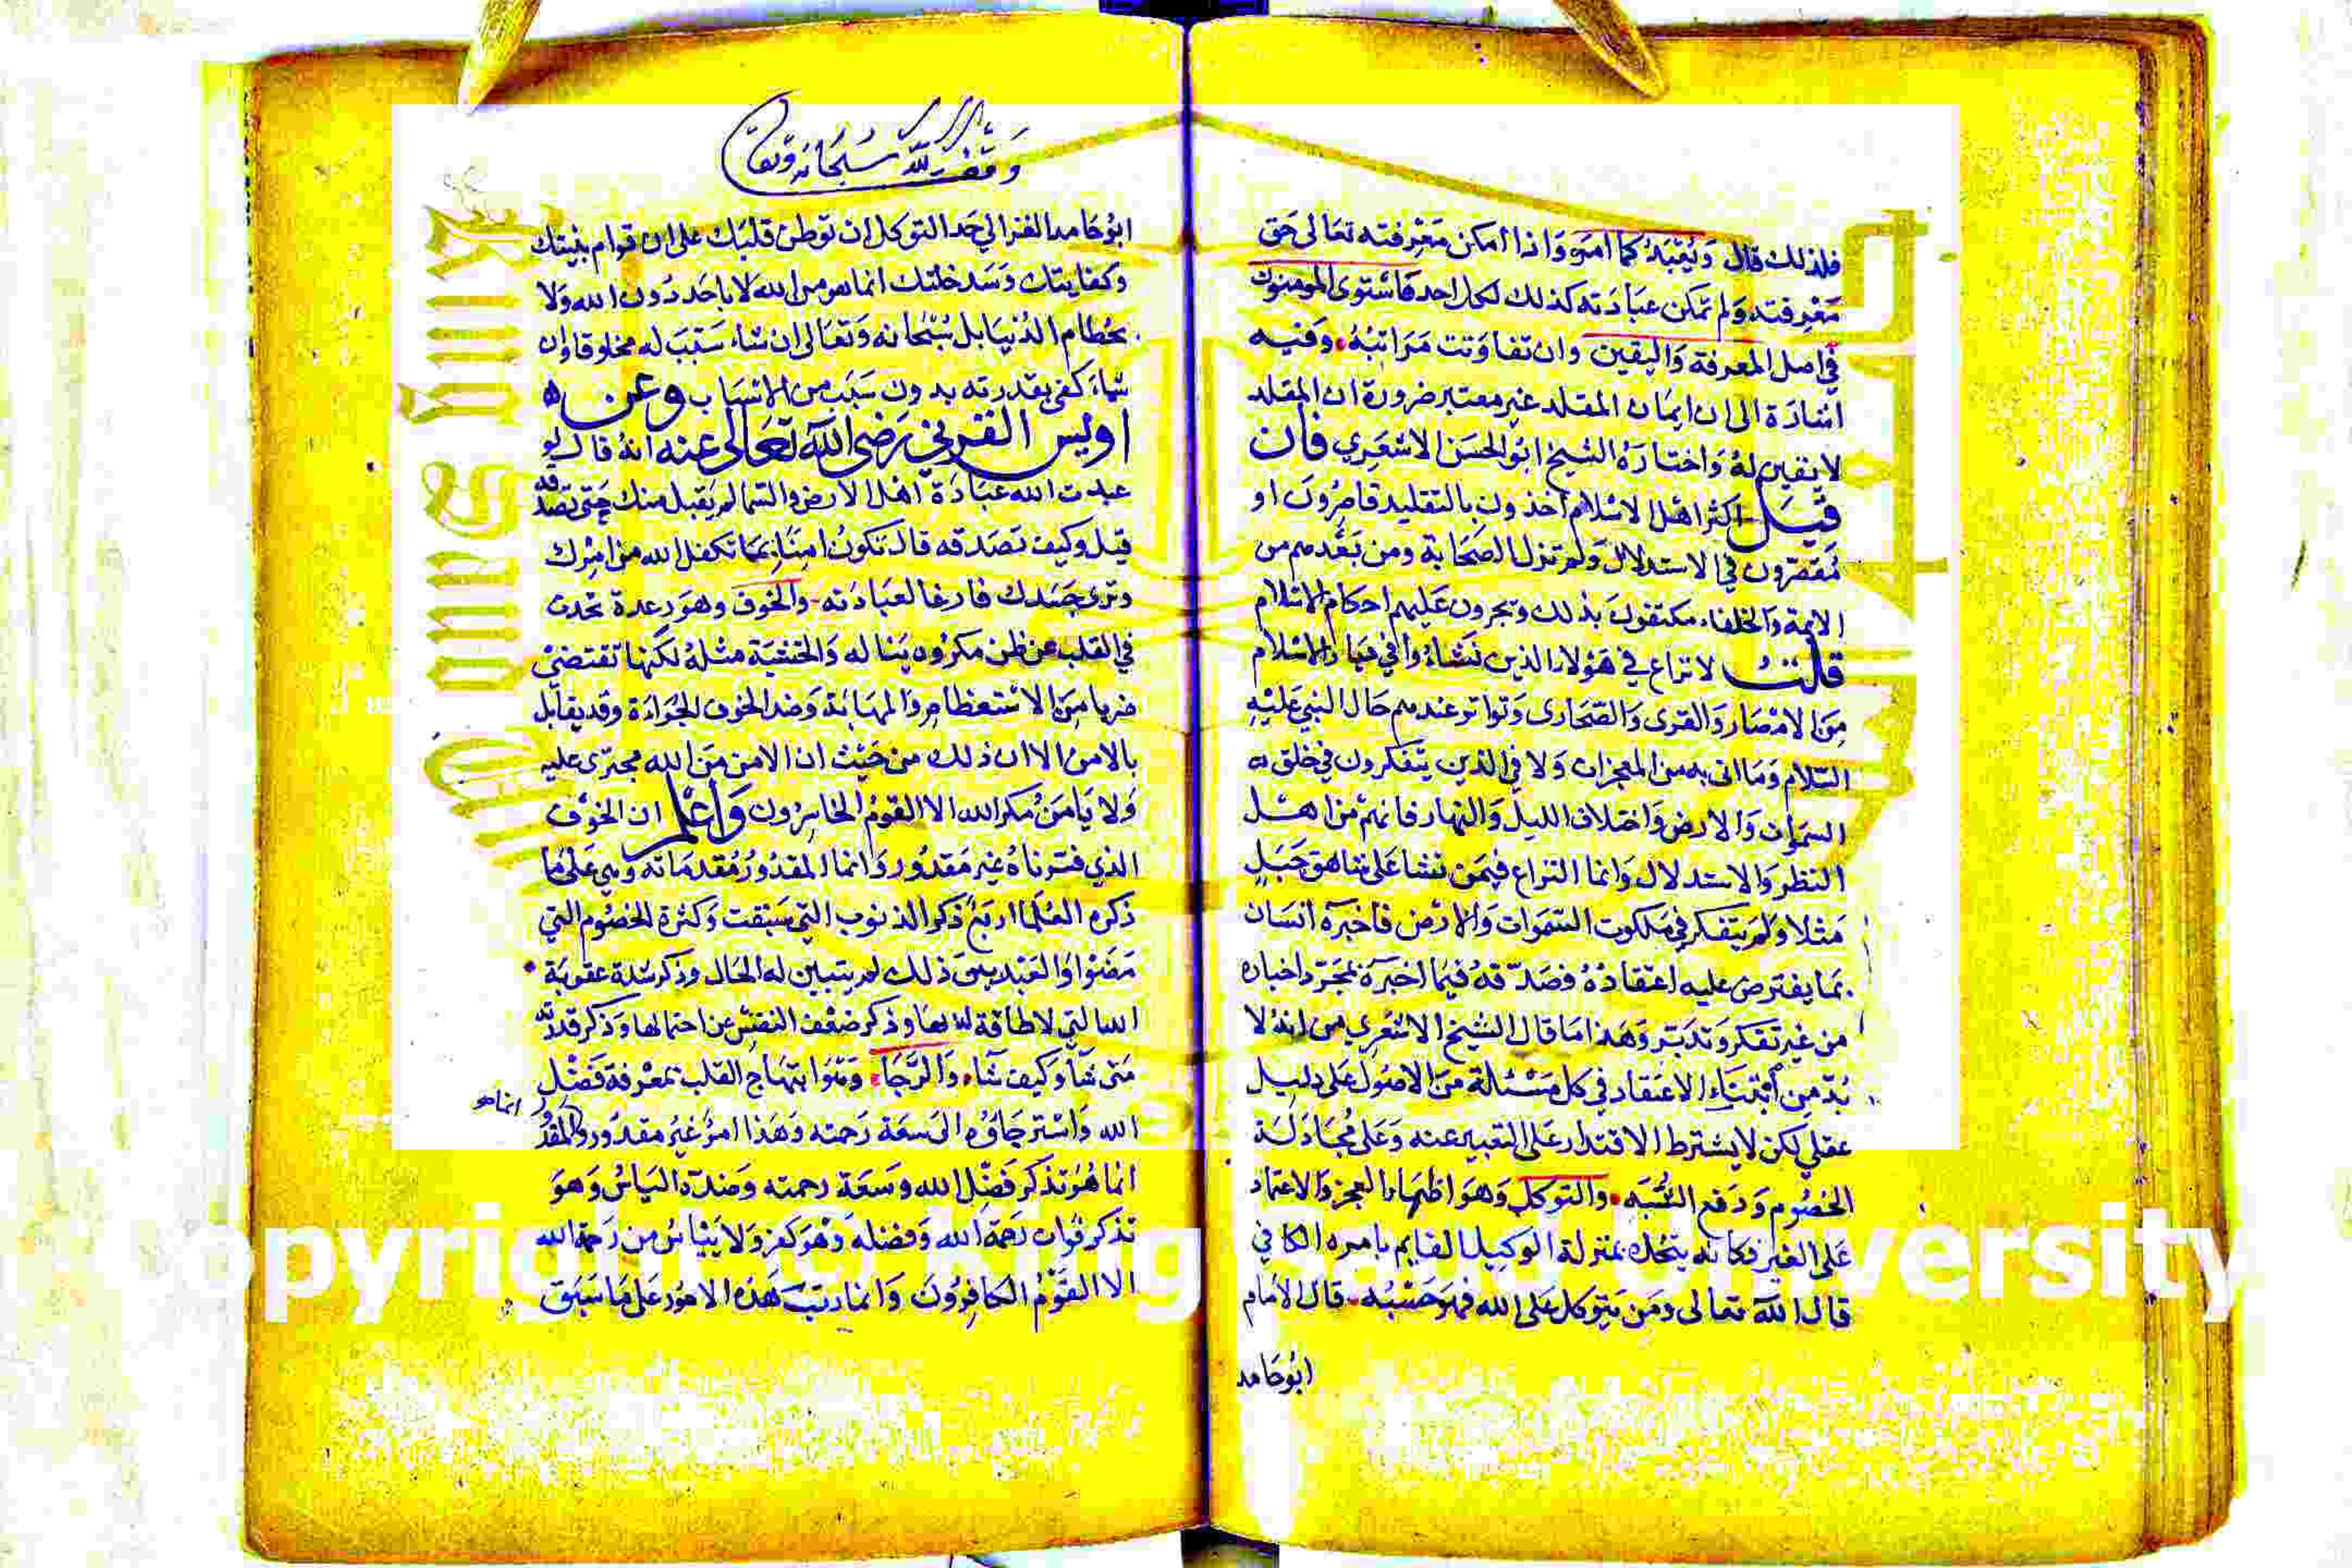 فلذلك قال ويعبد كما امر واذا امكن معرفته تعالى حق
معرفته ولم تمكن عبادته كذلك لكل احد فاستوى المومنون
في اصل المعرفة واليقين وان تفاوتت مراتبه وفيه
اشارة الى ان ايمان المقلد غير معتبر ضرورة ان المقلد
لا يقين له واختاره الشيخ ابو الحسن الاشعري فان
قيل اكثر اهل الاسلام آخذون بالتقليد قاصرون او
مقصرون في الاستدلال ولم تزل الصحابة ومن بعدهم من
الايمة والخلفاء مكتفون بذلك ويجرون عليهم احكام الاسلام
قلت لا نزاع في هؤلاء الذين نشاؤا في ديار الاسلام
من الامصار والقرى والصحارى وتواتر عندهم حال النبي عليه
السلام وما اتى به من المعجزات ولا في الذين يتفكرون في خلق
السموات والارض واختلاف الليل والنهار فانهم من اهل
النظر والاستدلال وانما النزاع فيمن نشا على شاهق جبل
مثلا ولم يتفكر في ملكوت السموات والارض فاخبره انسان
بما يفترض عليه اعتقاده فصدقه فيما اخبره بمجرد اخباره
من غير تفكر وتدبر وهذا ما قال الشيخ الاشعري من انه لا
بد من ابتناء الاعتقاد في كل مسئلة من الاصول على دليل
عقلي لكن لا يشترط الاقتدار على التعبير عنه وعلى مجادلة
الخصوم ودفع الشبه والتوكل وهو اظهار العجز والاعتماد
على الغير فكانه يتخذه بمنزلة الوكيل القايم بامره الكافي
قال الله تعالى ومن يتوكل على الله فهو حسبه قال الامام
ابو حامد
وقف لله سبحانه وتعالى
ابو حامد الغزالي حد التوكل ان توطن قلبك على ان قوام بنيتك
وكفايتك وسد خلتك انما هو من الله لا باحد دون الله ولا
بحطام الدنيا بل سبحانه وتعالى ان شاء سبب له مخلوقا وان
شاء كفى بقدرته بدون سبب من الاسباب وعن
اويس القرني رضى الله تعالى عنه انه قال لو
عبدت الله عبادة اهل الارض والسما لم يقبل منك حتى تصدقه
قيل وكيف نصدقه قال تكون امنا بما تكفل الله من امرك
وترى جسدك فارغا لعبادته والخوف وهو رعدة تحدث
في القلب عن ظن مكروه يناله والخشية مثله لكنها تقتضي
ضربا من الاستعظام والمهابة وضد الخوف الجراءة وقد يقابل
بالامن الا ان ذلك من حيث ان الامن من الله مجترى عليه
ولا يامن مكر الله الا القوم الخاسرون واعلم ان الخوف
الذي فسرناه غير مقدور وانما المقدور مقدماته وهي على ما
ذكره العلما اربع ذكر الذنوب التي سبقت وكثرة الخصوم التي
مضوا والعبد ذلك لم يتبين له الحال وذكر شدة عقوبة
الله التي لا طاقة بها وذكر ضعف النفس عن احتمالها وذكر قدرة الله
متى شا وكيف شاء والرجا وهو ابتهاج القلب بمعرفة فضل
الله واسترجاؤه الى سعة رحمته وهذا امر غير مقدور والمقدور
انما هو
انما هو تذكر فضل الله وسعة رحمته وضده الياس وهو
تذكر فوات رحمة الله وفضله وهو كفر ولا ييئاس من رحمة الله
الا القوم الكافرون وانما رتب هذه الامور على ما سبق
opyright © King Saud University